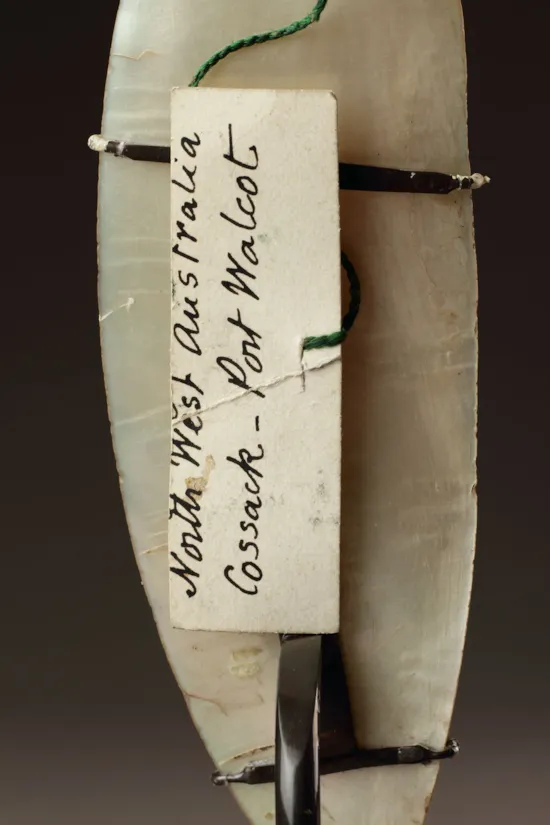 North West Australia
Cossack - Port Walcot